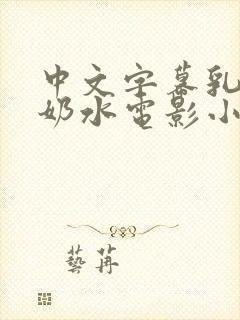 中文字幕乳
奶水电影小
藝苒